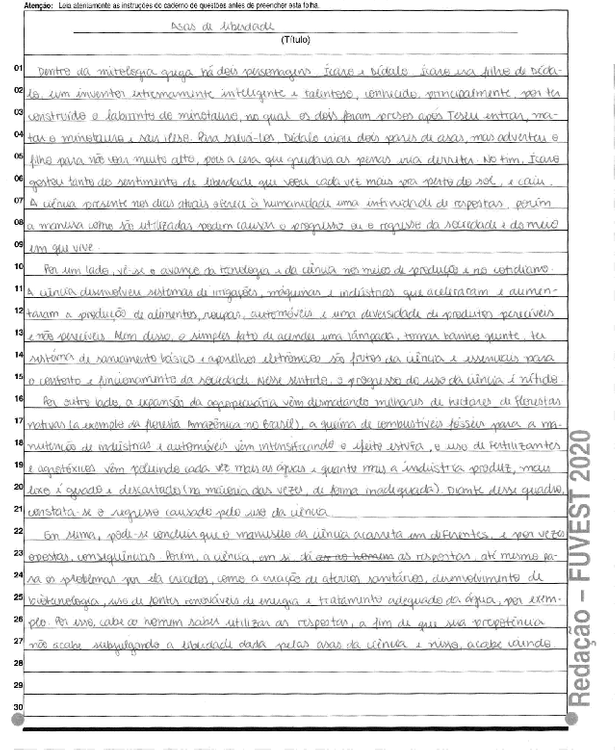 Atenção: Leia atentamente as instruções do caderno de questões antes de preencher esta folha.
Asas de liberdade
(Título)
01 Dentro da mitologia grega há dois personagens: Ícaro e Dédalo. Ícaro era filho de Déda-
02 lo, um inventor extremamente inteligente e talentoso, conhecido, principalmente, por ter
03 construído o labirinto do minotauro, no qual os dois foram presos após Teseu entrar, ma-
04 tar o minotauro e sair ileso. Para salvá-los, Dédalo criou dois pares de asas, mas advertiu o
05 filho para não voar muito alto, pois a cera que grudava as penas iria derreter. No fim, Ícaro
06 gostou tanto do sentimento de liberdade que voou cada vez mais pra perto do sol, e caiu.
07 A ciência presente nos dias atuais oferece à humanidade uma infinidade de respostas, porém
08 a maneira como são utilizadas podem causar o progresso ou o regresso da sociedade e do meio
09 em que vive.
10 Por um lado, vê-se o avanço da tecnologia e da ciência nos meios de produção e no cotidiano.
11 A ciência desenvolveu sistemas de irrigações, máquinas e indústrias que aceleraram e aumen-
12 taram a produção de alimentos, roupas, automóveis e uma diversidade de produtos perecíveis
13 e não perecíveis. Além disso, o simples fato de acender uma lâmpada, tomar banho quente, ter
14 sistema de saneamento básico e aparelhos eletrônicos são frutos da ciência e essenciais para
15 o conforto e funcionamento da sociedade. Nesse sentido, o progresso do uso da ciência é nítido.
16 Por outro lado, a expansão da agropecuária vem desmatando milhares de hectares de florestas
17 nativas (a exemplo da floresta Amazônica no Brasil), a queima de combustíveis fósseis para a ma-
18 nutenção de indústrias e automóveis vem intensificando o efeito estufa, o uso de fertilizantes
19 e agrotóxicos vem poluindo cada vez mais as águas e quanto mais a indústria produz, mais
20 lixo é gerado e descartado (na maioria das vezes, de forma inadequada). Diante desse quadro,
21 constata-se o regresso causado pelo uso da ciência.
22 Em suma, pode-se concluir que o manuseio da ciência acarreta em diferentes, e por vezes
23 opostas, consequências. Porém, a ciência, em si, dá ao homem as respostas, até mesmo pa-
24 ra os problemas por ela criados, como a criação de aterros sanitários, desenvolvimento de
25 biotecnologia, uso de fontes renováveis de energia e tratamento adequado da água, por exem-
26 plo. Por isso, cabe ao homem saber utilizar as respostas, a fim de que sua prepotência
27 não acabe subjulgando a liberdade dada pelas asas da ciência e nisso, acabe caindo
28
29
30
Redação – FUVEST 2020